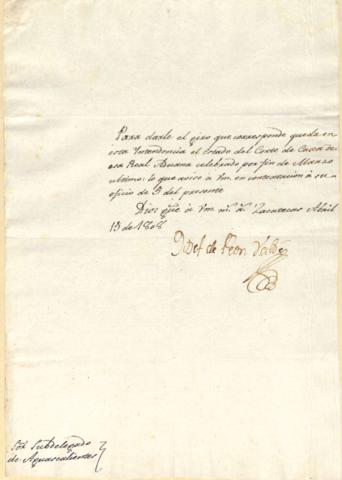 Para darle el giro que corresponde queda en
esta Yntendencia el Estado del Corte de Caxa de
esa Real Aduana celebrado por fin de Marzo
ultimo: lo que aviso à Vm. en contextacion à su
oficio de 5 del presente
Dios gũe à Vm. m.ˢ a.ˢ Zacatecas Abril
15 de 1808
de Leon Valdés
Sõr. Subdelegado
de Aguascalientes